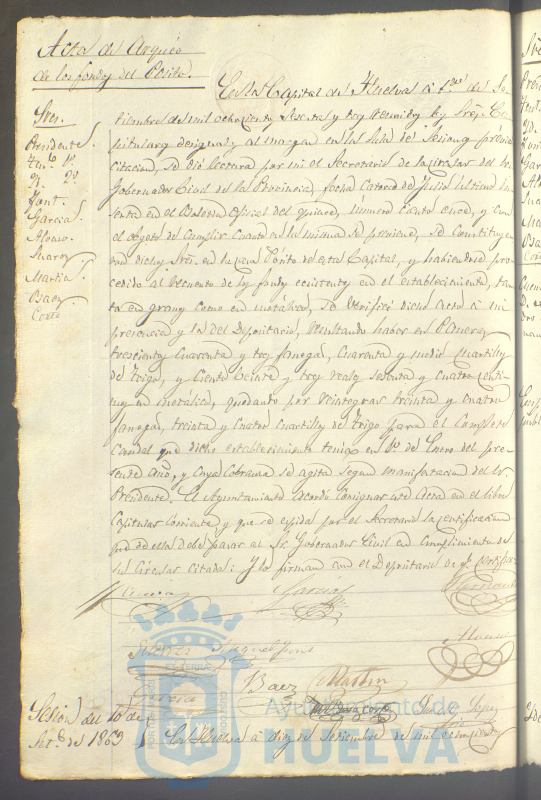 Acta de Arquéo
de los fondos del Pósito.
En la Capital de Huelva á 1.º de Se
Sres.
tiembre de mil ochocientos sesenta y tres reunidos los Sres. Ca
Presidente
pitulares designados al margen en la Sala de Sesiones previa
citacion, se dió lectura por mi el Secretario de la circular del Sr.
Gobernador Civil de la Provincia, fecha catorce de Julio último in
Font.
serta en el Boletin oficial del quince, número ciento once, y con
Garcia
el objeto de cumplir cuanto en la misma se previene, se constituye
Alonso.
ron dichos Sres. en la Casa Pósito de esta Capital, y habiendose pro
Suarez
cedido al recuento de los fondos existentes en el establecimiento, tan
Martin
to en granos como en metálico, se verificó dicho acto á mi
Baez
presencia y la del Depositario, resultando haber en Paneras
Corte
trescientas cuarenta y tres fanegas, cuarenta y medio cuartillos
de trigo, y ciento veinte y tres reales sesenta y cuatro centi
mos en metálico, quedando por reintegrar treinta y cuatro
fanegas, treinta y cuatro cuartillos de trigo para el completo
caudal que dicho establecimiento tenia en 1.º de Enero del pre
sente año, y cuya cobranza se agita segun manifestacion del Sr.
Presidente. El Ayuntamiento acordó consignar este Acta en el libro
Capitular corriente y que se espida por el Secretario la certificacion
que de esta debe pasar al Sr. Gobernador Civil en cumplimiento de
su Circular citada: Y lo firman con el Depositario de q.e certifico.
Garcia
Suarez Miguel Font
Garcia Baez Martin
Lopez
Sesion del 10 de
Set.e de 1863
En Huelva á diez de Setiembre de mil ochocientos
Ayuntamiento de
HUELVA